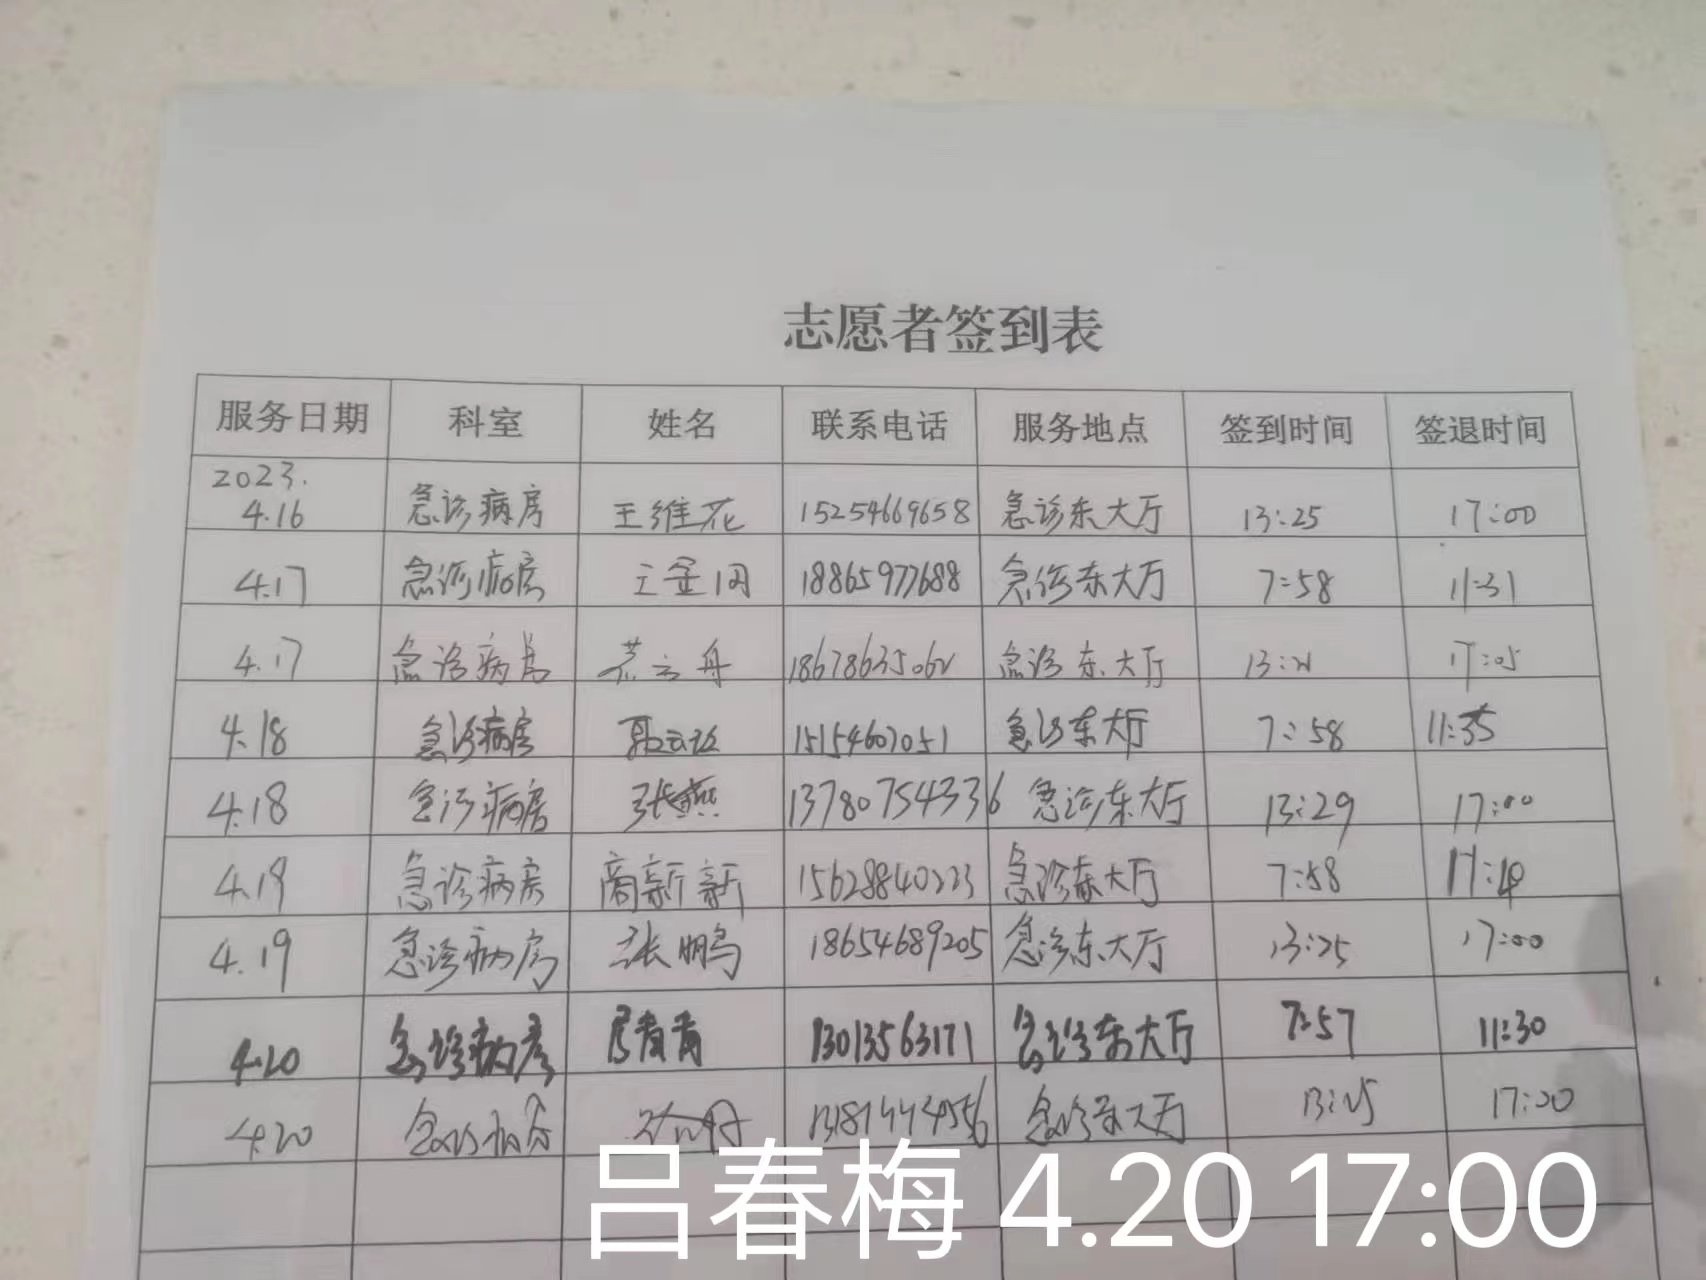 志愿者签到表
服务日期 科室 姓名 联系电话 服务地点 签到时间 签退时间
2023.
4.16 急诊病房 王维花 15254669658 急诊东大厅 13:25 17:00
4.17 急诊病房 18865977688 急诊东大厅 7:58 11:31
4.17 急诊病房 急诊东大厅 13:21 17:05
4.18 急诊病房 15154607051 急诊东大厅 7:58 11:35
4.18 急诊病房 张燕 13780754336 急诊东大厅 13:29 17:00
4.19 急诊病房 商新新 15628840223 急诊东大厅 7:58
4.19 急诊病房 张鹏 18654689205 急诊东大厅 13:25 17:00
4.20 急诊病房 13013563171 急诊东大厅 7:57 11:30
4.20 急诊病房 急诊东大厅 13:25 17:00
吕春梅 4.20 17:00